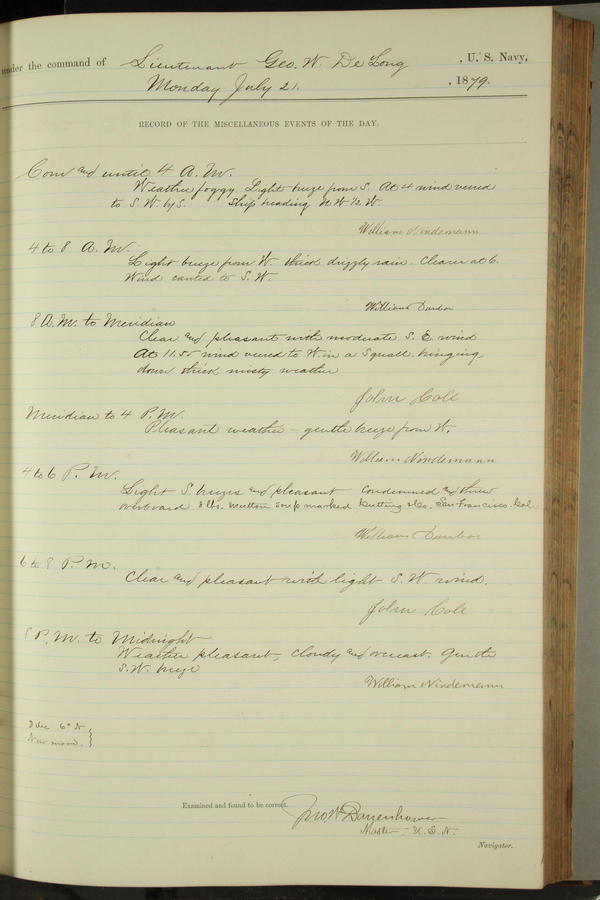 under the command of Lieutenant Geo. W. De Long, U. S. Navy,
Monday July 21, 1879.
RECORD OF THE MISCELLANEOUS EVENTS OF THE DAY.
Com and until 4 A.M.
Weather foggy. Light breeze from S. At 4 wind veered
to S.W. by S. Ship heading NW ½ W.
William Nindemann
4 to 8 A.M.
Light breeze from W. thick drizzly rain. Clearer at 6.
Wind canted to S.W.
William Dunbar
8 A.M. to Meridian
Clear and pleasant with moderate S.E. wind
At 11.50 wind veered to W. in a Squall, bringing
down thick misty weather
John Cole
Meridian to 4 P.M.
Pleasant weather - gentle breeze from W.
William Nindemann
4 to 6 P.M.
Light S. breezes and pleasant Condemned and threw
overboard 2 lbs. mutton soup marked Cutting & Co. San Francisco. Cal.
William Dunbar
6 to 8 P.M.
Clear and pleasant with light S.W. wind.
John Cole
8 P.M. to Midnight
Weather pleasant, cloudy and overcast. Gentle
S.W. breeze
William Nindemann
6° N
New moon.
Examined and found to be correct. Jno. W. Danenhower
Master - U.S.N.
Navigator.